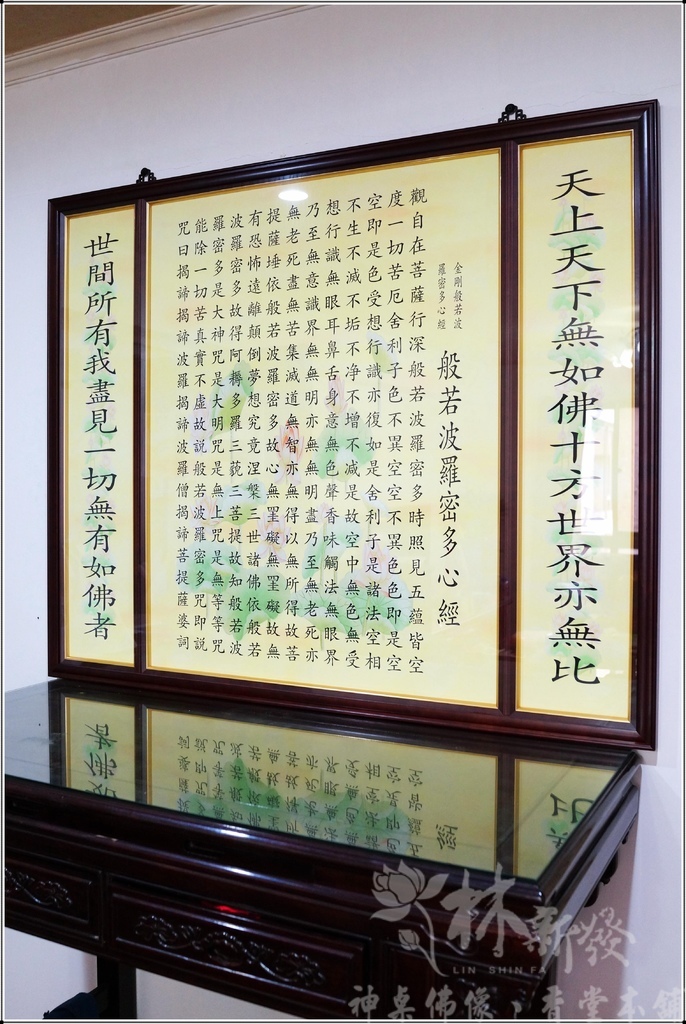 天上天下無如佛十方世界亦無比
金剛般若波
羅密多心經
般若波羅密多心經
觀自在菩薩行深般若波羅密多時照見五蘊皆空
度一切苦厄舍利子色不異空空不異色色即是空
空即是色受想行識亦復如是舍利子是諸法空相
不生不滅不垢不净不增不減是故空中無色無受
想行識無眼耳鼻舌身意無色聲香味觸法無眼界
乃至無意識界無無明亦無無明盡乃至無老死亦
無老死盡無苦集滅道無智亦無得以無所得故菩
提薩埵依般若波羅密多故心無罣礙無罣礙故無
有恐怖遠離顛倒夢想究竟涅槃三世諸佛依般若
波羅密多故得阿耨多羅三藐三菩提故知般若波
羅密多是大神咒是大明咒是無上咒是無等等咒
能除一切苦真實不虛故說般若波羅密多咒即說
咒曰揭諦揭諦波羅揭諦波羅僧揭諦菩提薩婆訶
世間所有我盡見一切無有如佛者
林新發
LIN SHIN FA
神桌佛像、香堂本舖